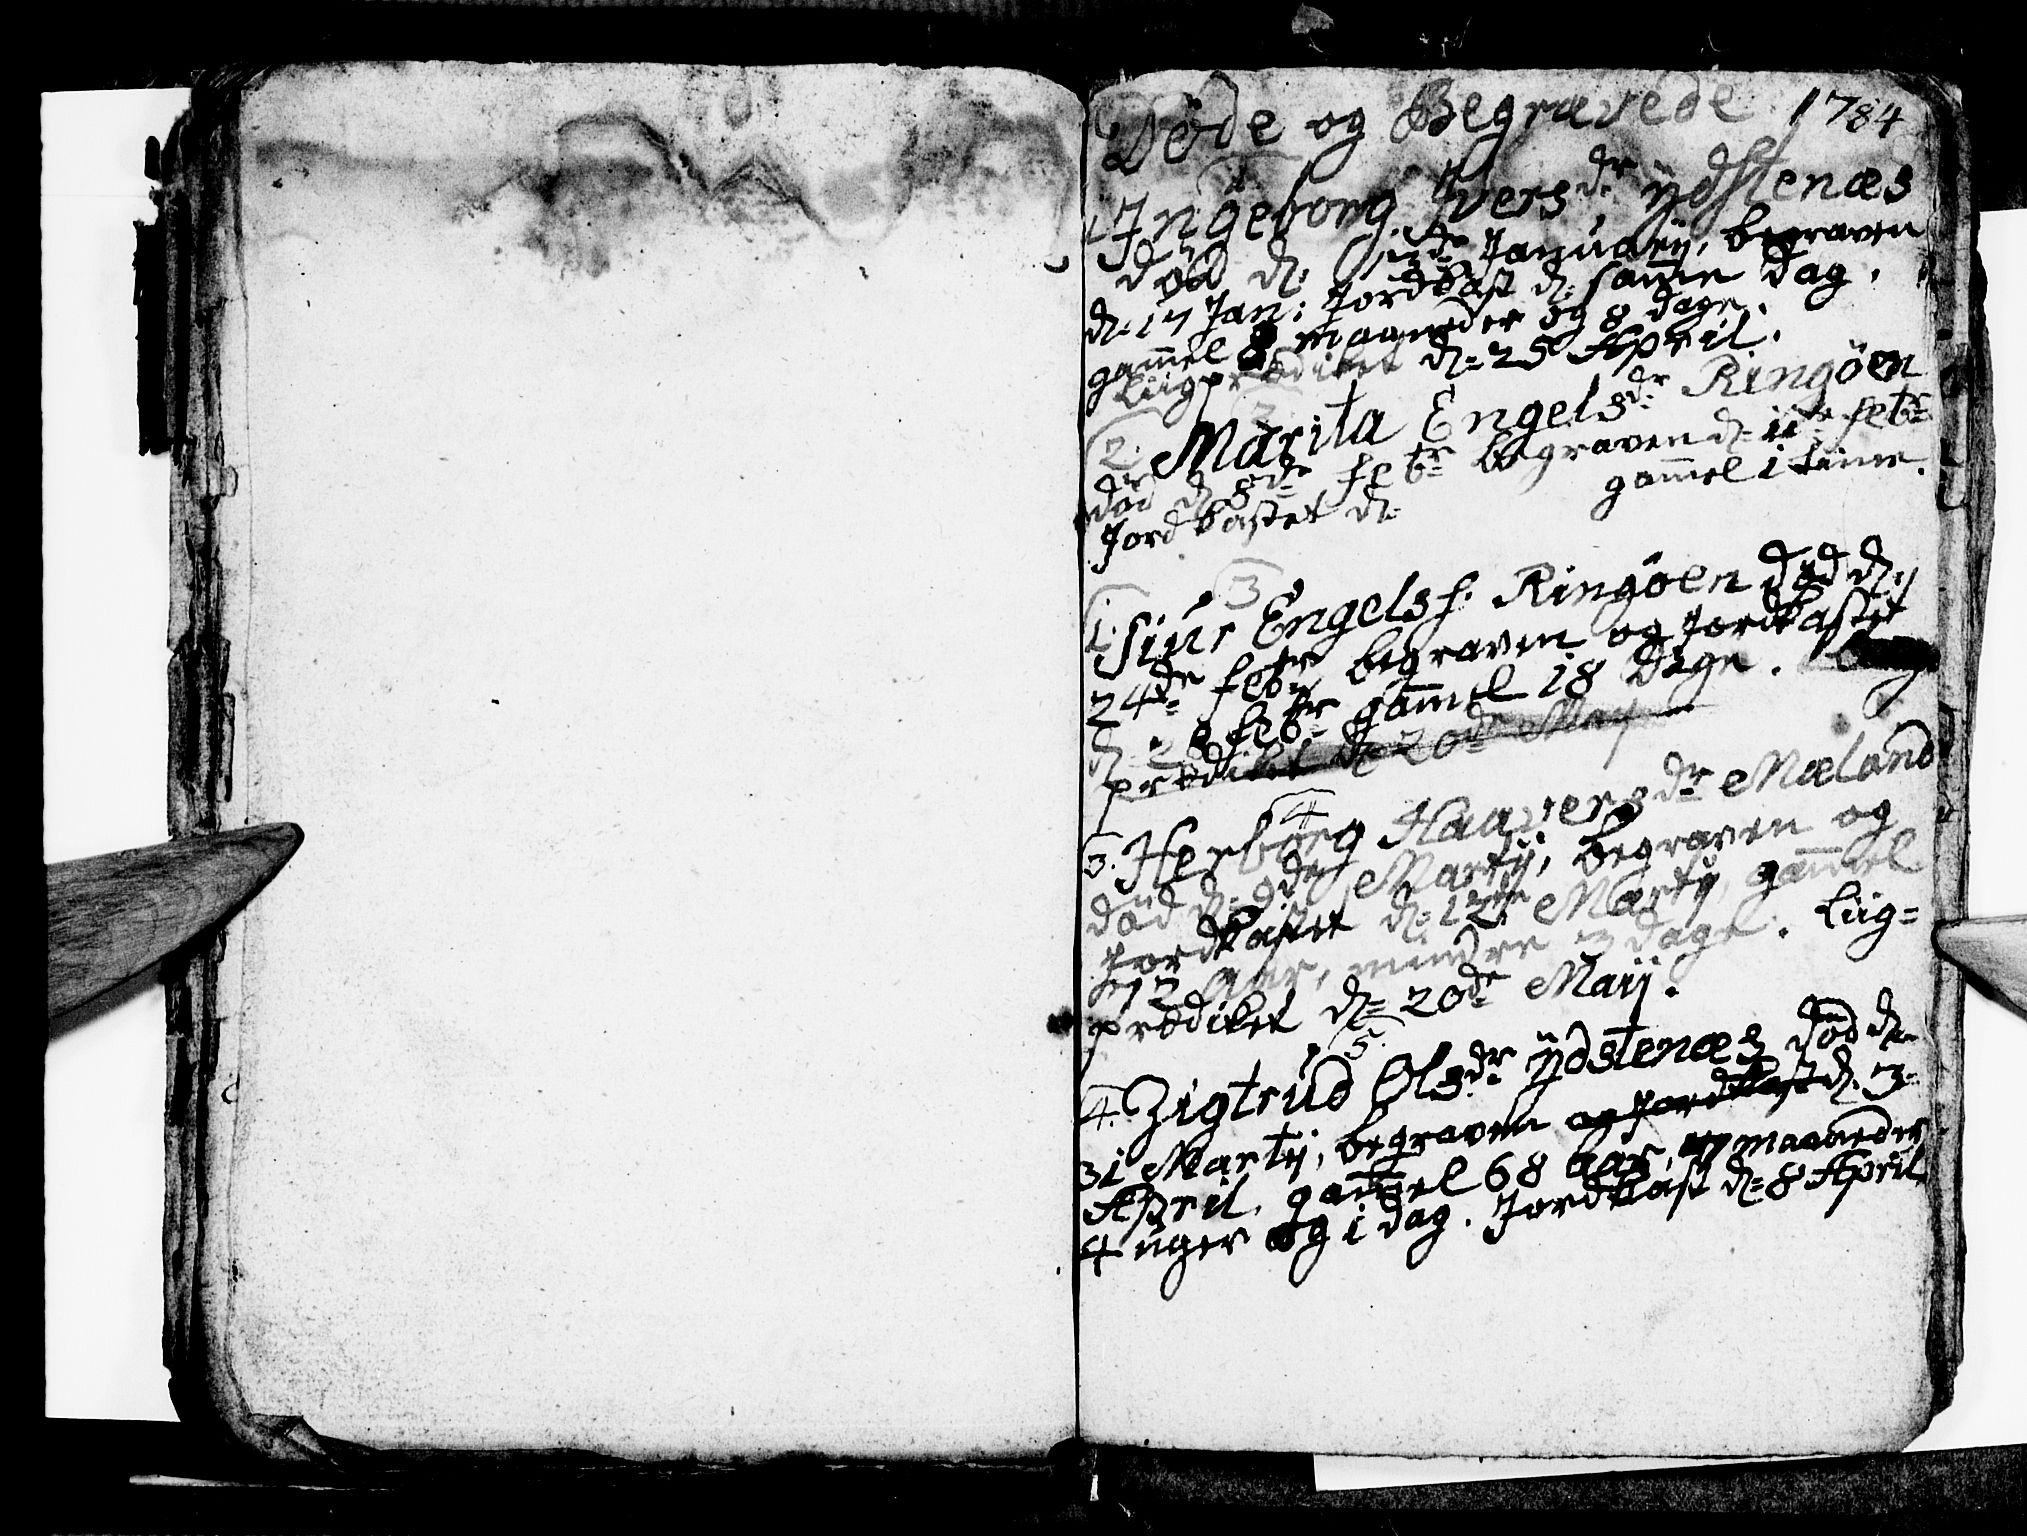 Döde og Begravede 1784
1.
1. Ingeborg Ivers dr ÿdstenæs
död d: 13de Januarÿ, begraven
d: 17 Jan: Jordkast d: samme dag.
gam̄el 8 maaneder og 8 dage.
Liigprædiket d: 25 April.
2.
2. Marita Engels dr Ringöen
död d: 8de febr begraven d: 11te febr
Jordkastet d: gam̄el 1 time.
3
1. Siur Engels f: Ringöen död d:
24de febr begraven og Jordkastet
d: 28 febr gam̄el 18 dage.
prædiket d: 20de Maÿ
4
3. Herborg Haavers dr Mæland
död d: 9de Martÿ, begraven og
Jordkastet d: 12te Martÿ, gam̄el
72 aar, mindre 3 dage. Liig=
prædiket d: 20de Maÿ.
5.
4. Zigtrud Ols dr ÿdstenæs död d:
31 Martÿ, begraven og Jordkast d: 3
April, gam̄el 68 aar, 7 maaneder
4 uger og 1 dag. Jordkast d: 8 April